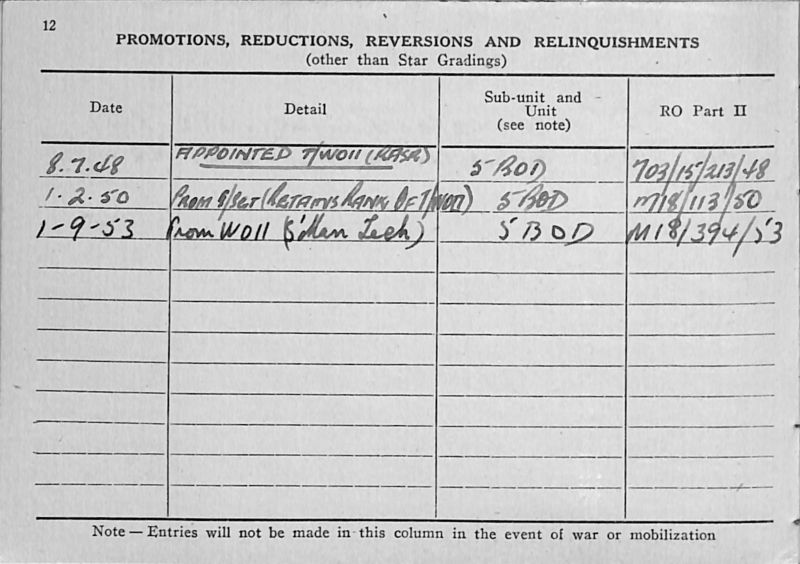 12
PROMOTIONS, REDUCTIONS, REVERSIONS AND RELINQUISHMENTS
(other than Star Gradings)
Date Detail Sub-unit and Unit (see note) RO Part II
8.7.48 APPOINTED T/WOII (RASR) 5 BOD 703/15/213/48
1.2.50 Prom S/Sgt (Retains Rank of T/WOII) 5 BOD M18/113/50
1-9-53 Prom WOII (S'Man Tech) 5 BOD M18/394/53
Note — Entries will not be made in this column in the event of war or mobilization